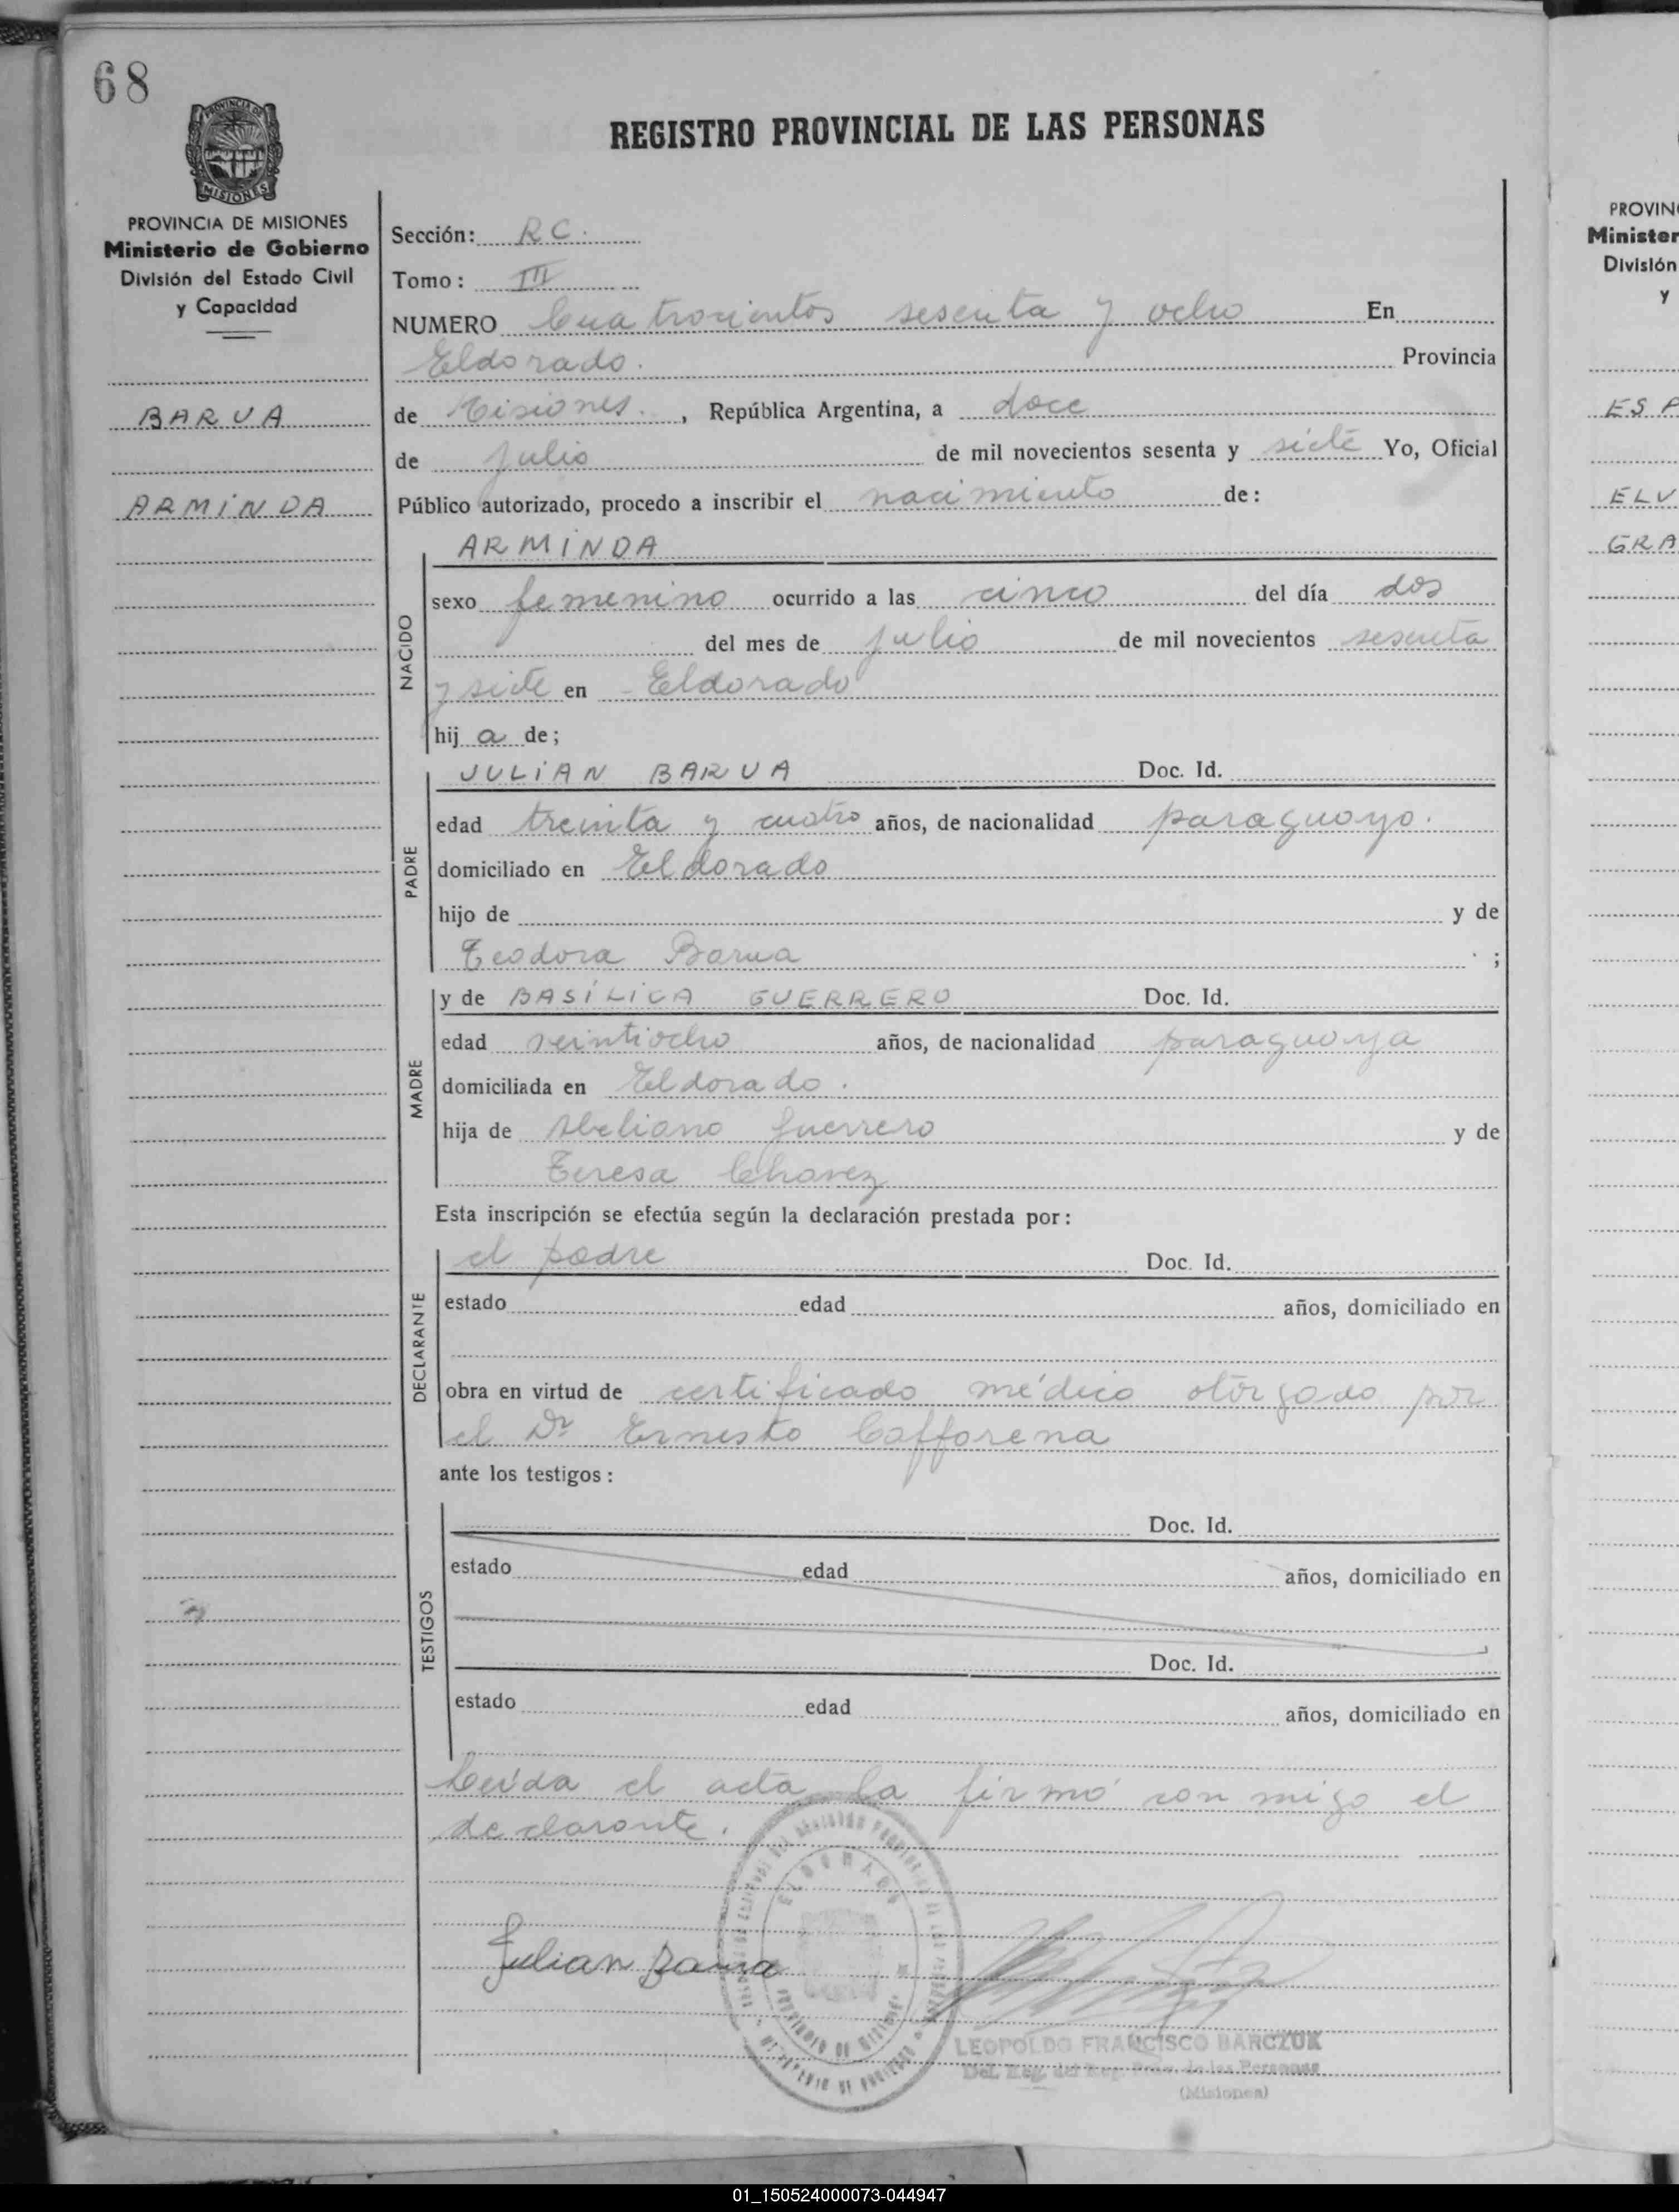 68
REGISTRO PROVINCIAL DE LAS PERSONAS
PROVINCIA DE
MISIONES
PROVINCIA DE MISIONES
Ministerio de Gobierno
División del Estado Civil
y Capacidad
BARUA
ARMINDA
Sección: RC.
Tomo: III
NUMERO Cuatrocientos sesenta y ocho En
Eldorado. Provincia
de Misiones. , República Argentina, a doce
de julio de mil novecientos sesenta y siete Yo, Oficial
Público autorizado, procedo a inscribir el nacimiento de:
NACIDO
ARMINDA
sexo femenino ocurrido a las cinco del día dos
del mes de julio de mil novecientos sesenta
y siete en Eldorado
hij a de;
PADRE
JULIAN BARUA Doc. Id.
edad treinta y cuatro años, de nacionalidad paraguayo.
domiciliado en Eldorado
hijo de y de
Teodora Barua ;
MADRE
y de BASÍLICA GUERRERO Doc. Id.
edad veintiocho años, de nacionalidad paraguaya
domiciliada en Eldorado.
hija de Abeliano Guerrero y de
Teresa Chavez
Esta inscripción se efectúa según la declaración prestada por:
DECLARANTE
el padre Doc. Id.
estado edad años, domiciliado en
obra en virtud de certificado médico otorgado por
el Dr Ernesto Cafforena
ante los testigos:
TESTIGOS
Doc. Id.
estado edad años, domiciliado en
Doc. Id.
estado edad años, domiciliado en
Leída el acta la firmó con migo el
declarante.
Julian Barua
ELDORADO
PROVINCIA DE MISIONES
LEOPOLDO FRANCISCO BARCZUK
Del. Reg. del Reg. Prov. de las Personas
(Misiones)
PROVIN
Minister
División
y
ES P
ELV
GRA
01_150524000073-044947